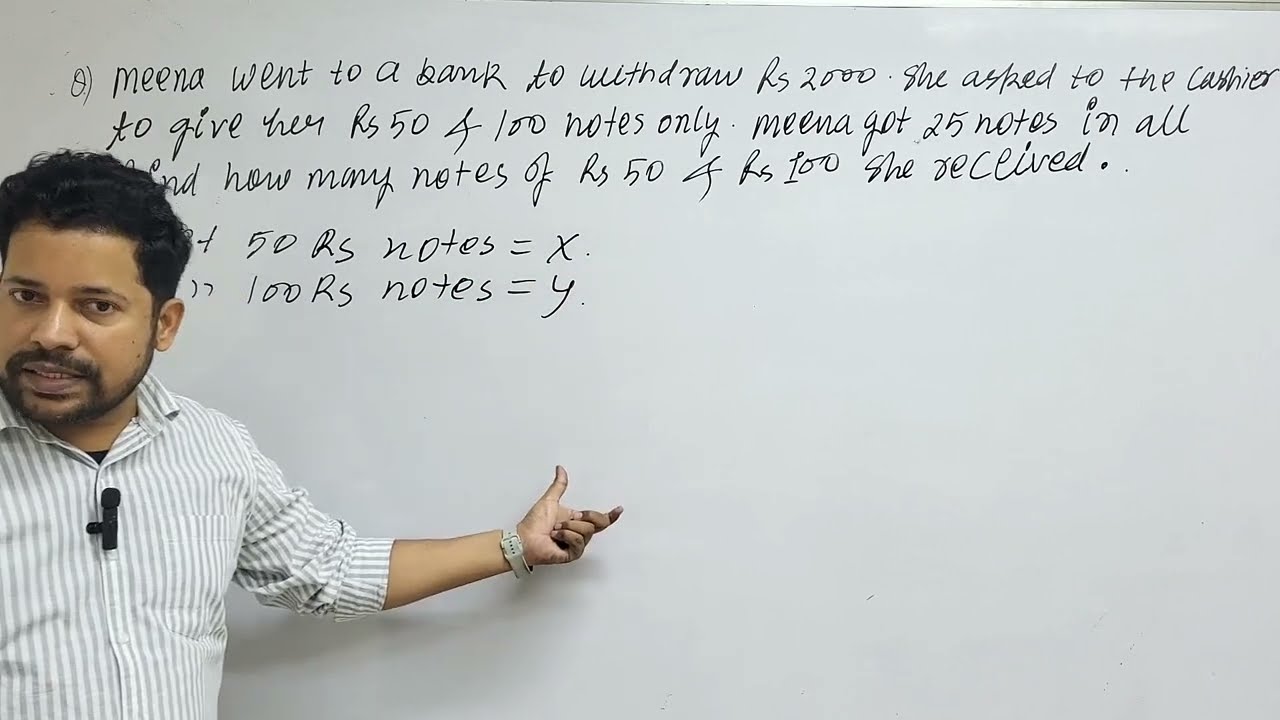 Q) Meena went to a bank to withdraw Rs 2000. She asked to the cashier
to give her Rs 50 & 100 notes only. Meena got 25 notes in all
how many notes of Rs 50 & Rs 100 she received.
50 Rs notes = x.
" 100 Rs notes = y.